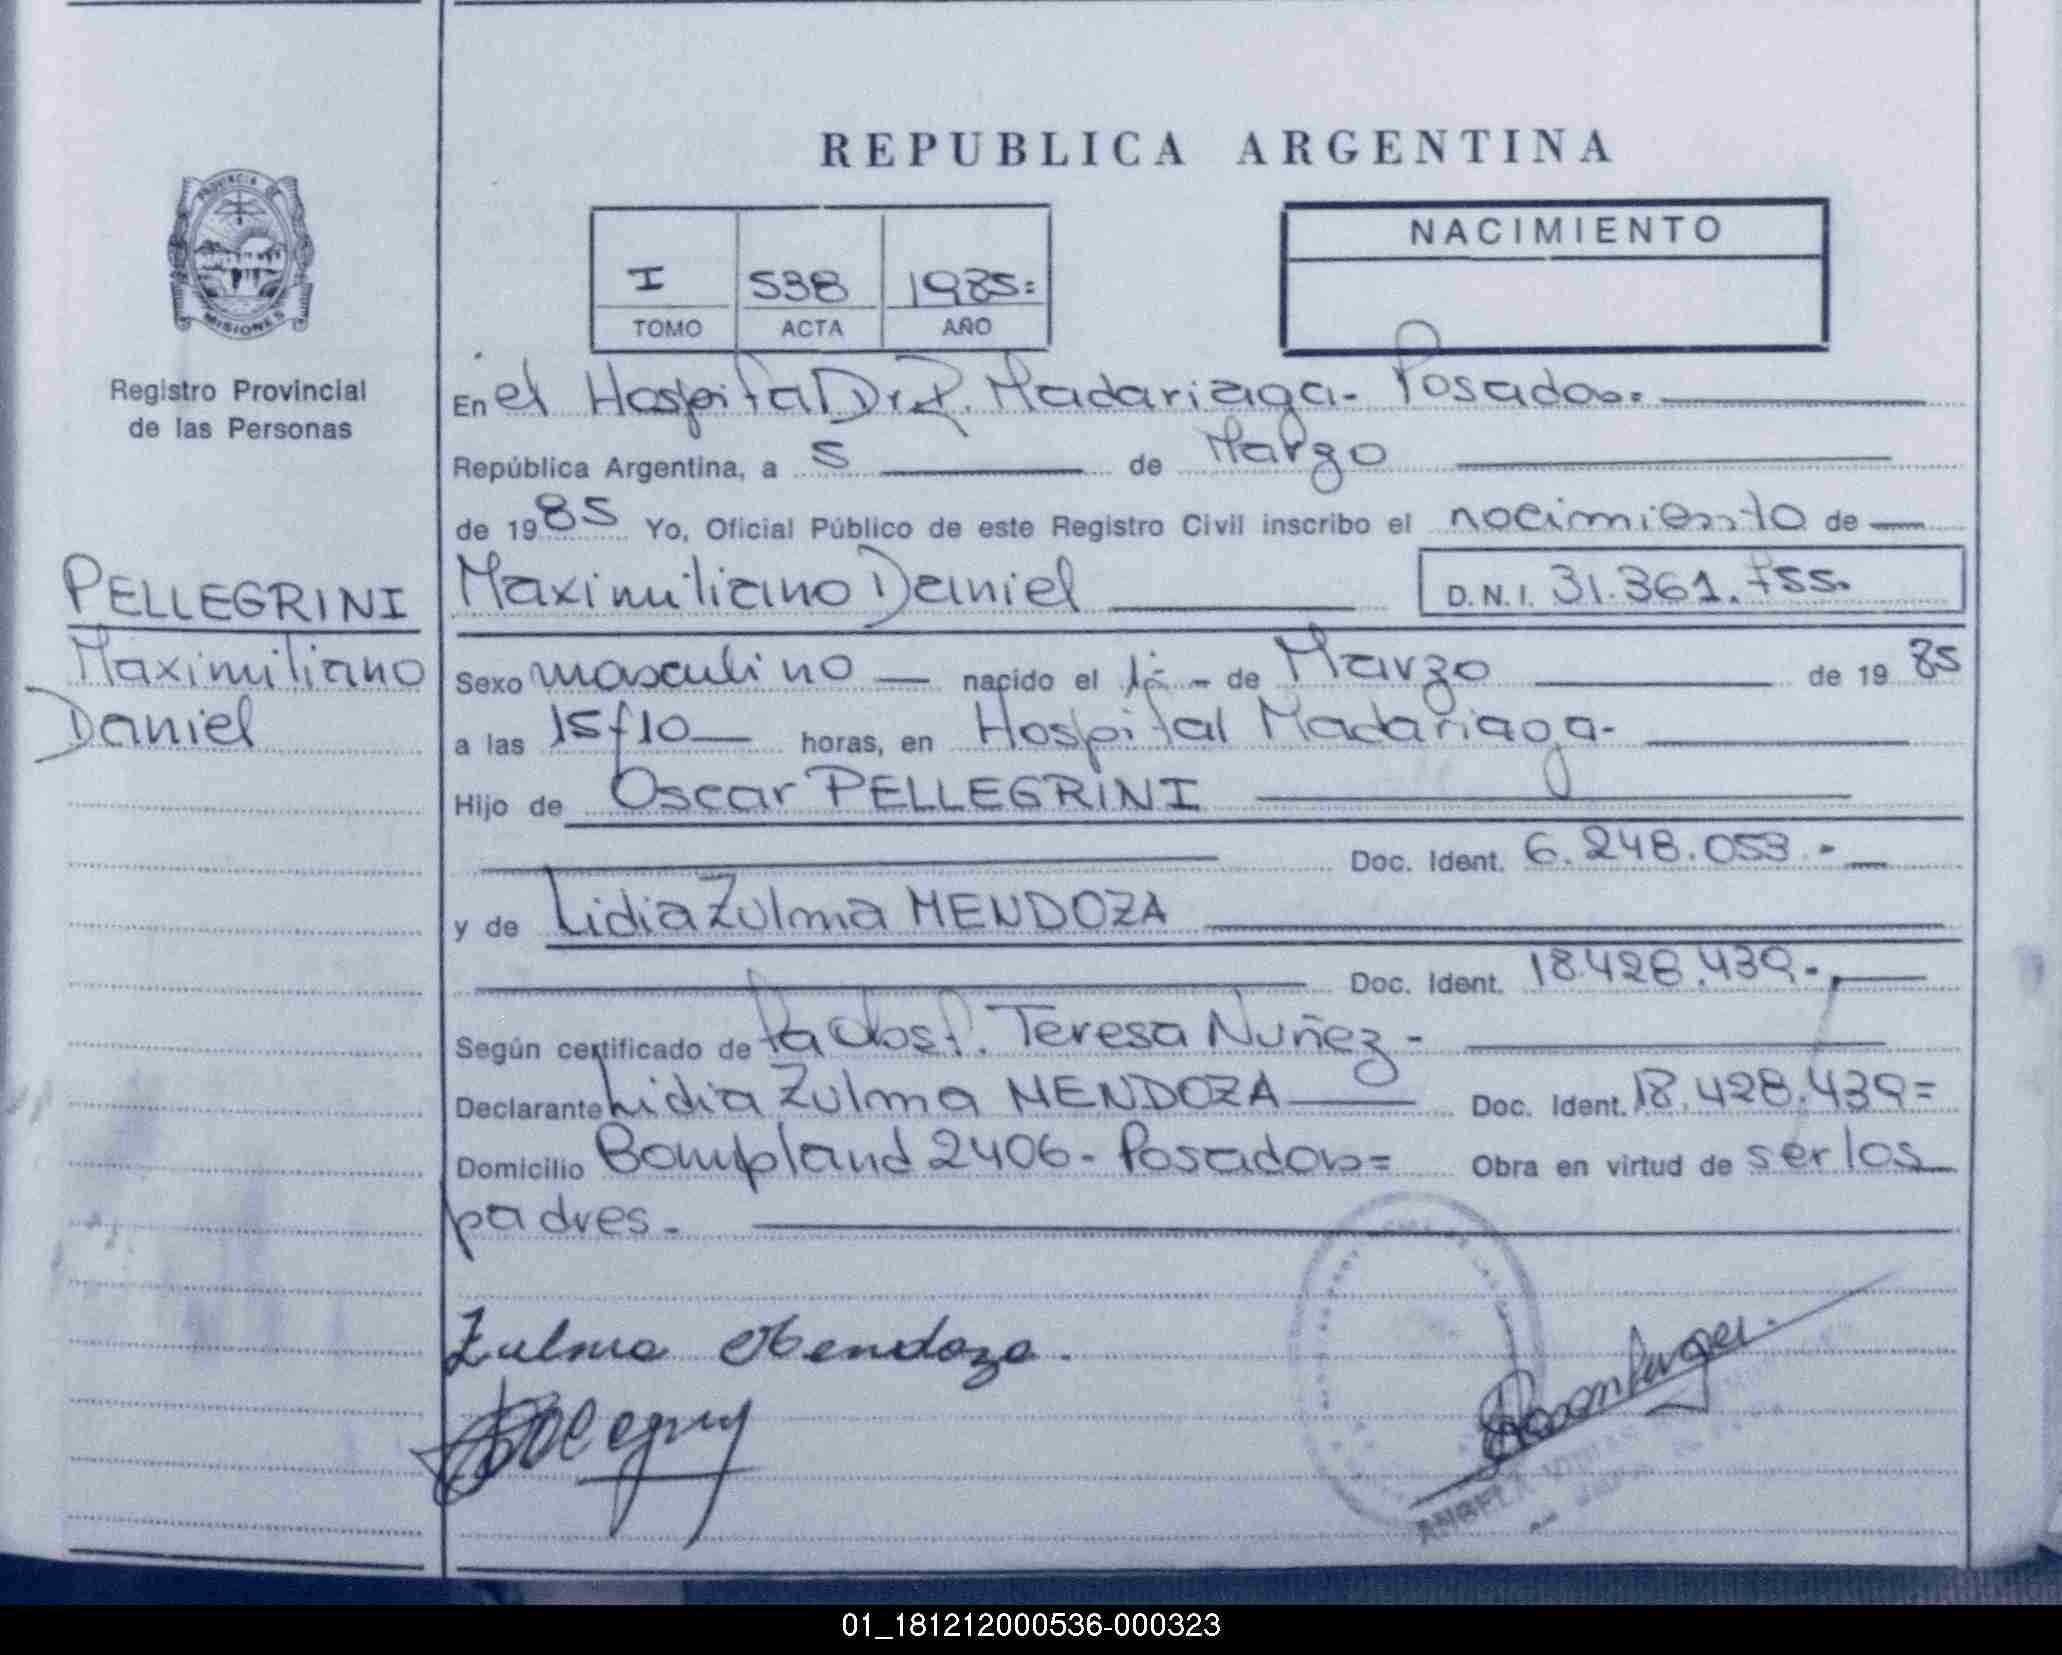 REPUBLICA ARGENTINA
PROVINCIA DE
MISIONES
Registro Provincial
de las Personas
I 538 1985=
TOMO ACTA AÑO
NACIMIENTO
En el Hospital Dr. R. Madariaga - Posadas =
República Argentina, a 5 de Marzo
de 1985 Yo, Oficial Público de este Registro Civil inscribo el nacimiento de
PELLEGRINI
Maximiliano
Daniel
Maximiliano Daniel
D.N.I. 31.361.755.
Sexo masculino nacido el 1º - de Marzo de 1985
a las 15 y 10 horas, en Hospital Madariaga -
Hijo de Oscar PELLEGRINI
Doc. Ident. 6.248.053 -
y de Lidia Zulma MENDOZA
Doc. Ident. 18.428.439 -
Según certificado de la Obst. Teresa Nuñez -
Declarante Lidia Zulma MENDOZA Doc. Ident. 18.428.439 =
Domicilio Bompland 2406 - Posadas = Obra en virtud de ser los
padres.
Zulma Mendoza.
ANGELA
01_181212000536-000323